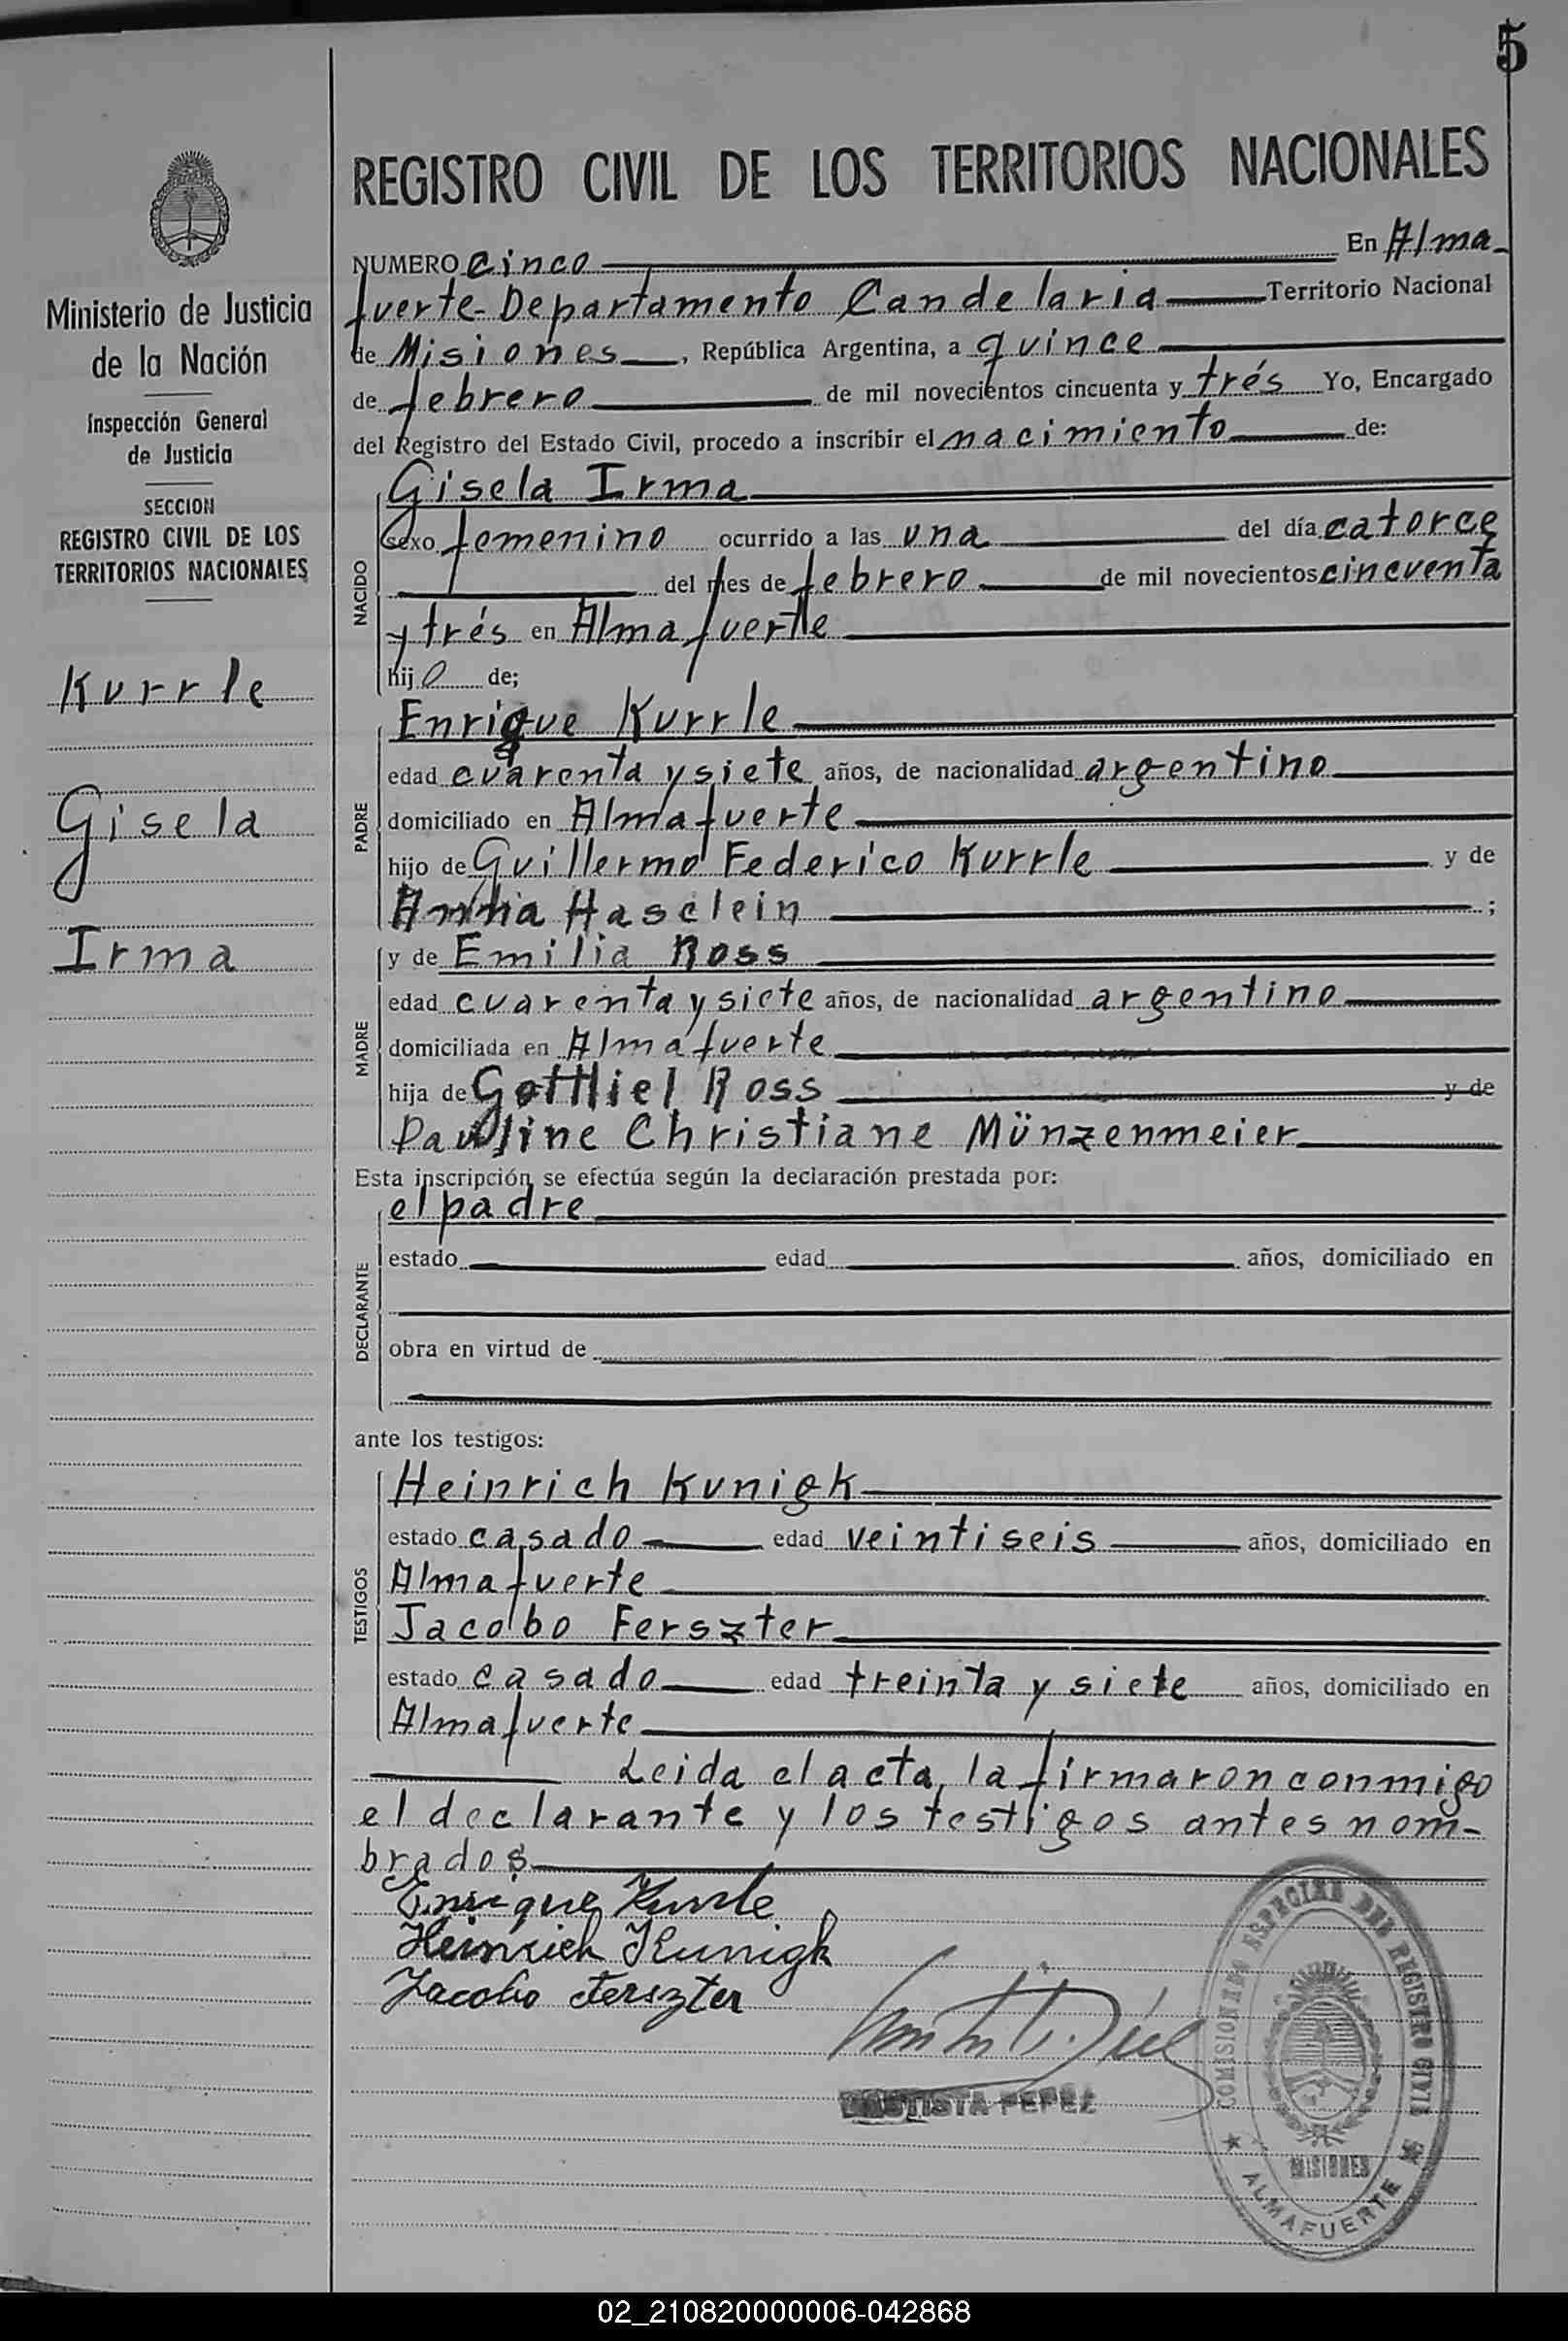 5
REGISTRO CIVIL DE LOS TERRITORIOS NACIONALES
Ministerio de Justicia
de la Nación
Inspección General
de Justicia
SECCION
REGISTRO CIVIL DE LOS
TERRITORIOS NACIONALES
Kurrle
Gisela
Irma
NUMERO Cinco En Alma-
fuerte - Departamento Candelaria Territorio Nacional
de Misiones, República Argentina, a quince
de febrero de mil novecientos cincuenta y trés Yo, Encargado
del Registro del Estado Civil, procedo a inscribir el nacimiento de:
NACIDO
Gisela Irma
sexo femenino ocurrido a las una del día catorce
del mes de febrero de mil novecientos cincuenta
y trés en Almafuerte
hijo de;
PADRE
Enrique Kurrle
edad cuarenta y siete años, de nacionalidad argentino
domiciliado en Almafuerte
hijo de Guillermo Federico Kurrle y de
Hasclein ;
MADRE
y de Emilia Ross
edad cuarenta y siete años, de nacionalidad argentino
domiciliada en Almafuerte
hija de Gottliel Ross y de
Pauline Christiane Münzenmeier
Esta inscripción se efectúa según la declaración prestada por:
DECLARANTE
el padre
estado edad años, domiciliado en
obra en virtud de
ante los testigos:
TESTIGOS
Heinrich Kunigk
estado casado edad veintiseis años, domiciliado en
Almafuerte
Jacobo Ferszter
estado casado edad treinta y siete años, domiciliado en
Almafuerte
Leida el acta, la firmaron conmigo
el declarante y los testigos antes nom-
brados
Enrique Kurrle
Heinrich Kunigk
Jacobo Ferszter
COMISIONADO ESPECIAL DEL REGISTRO CIVIL
MISIONES
ALMAFUERTE
02_210820000006-042868